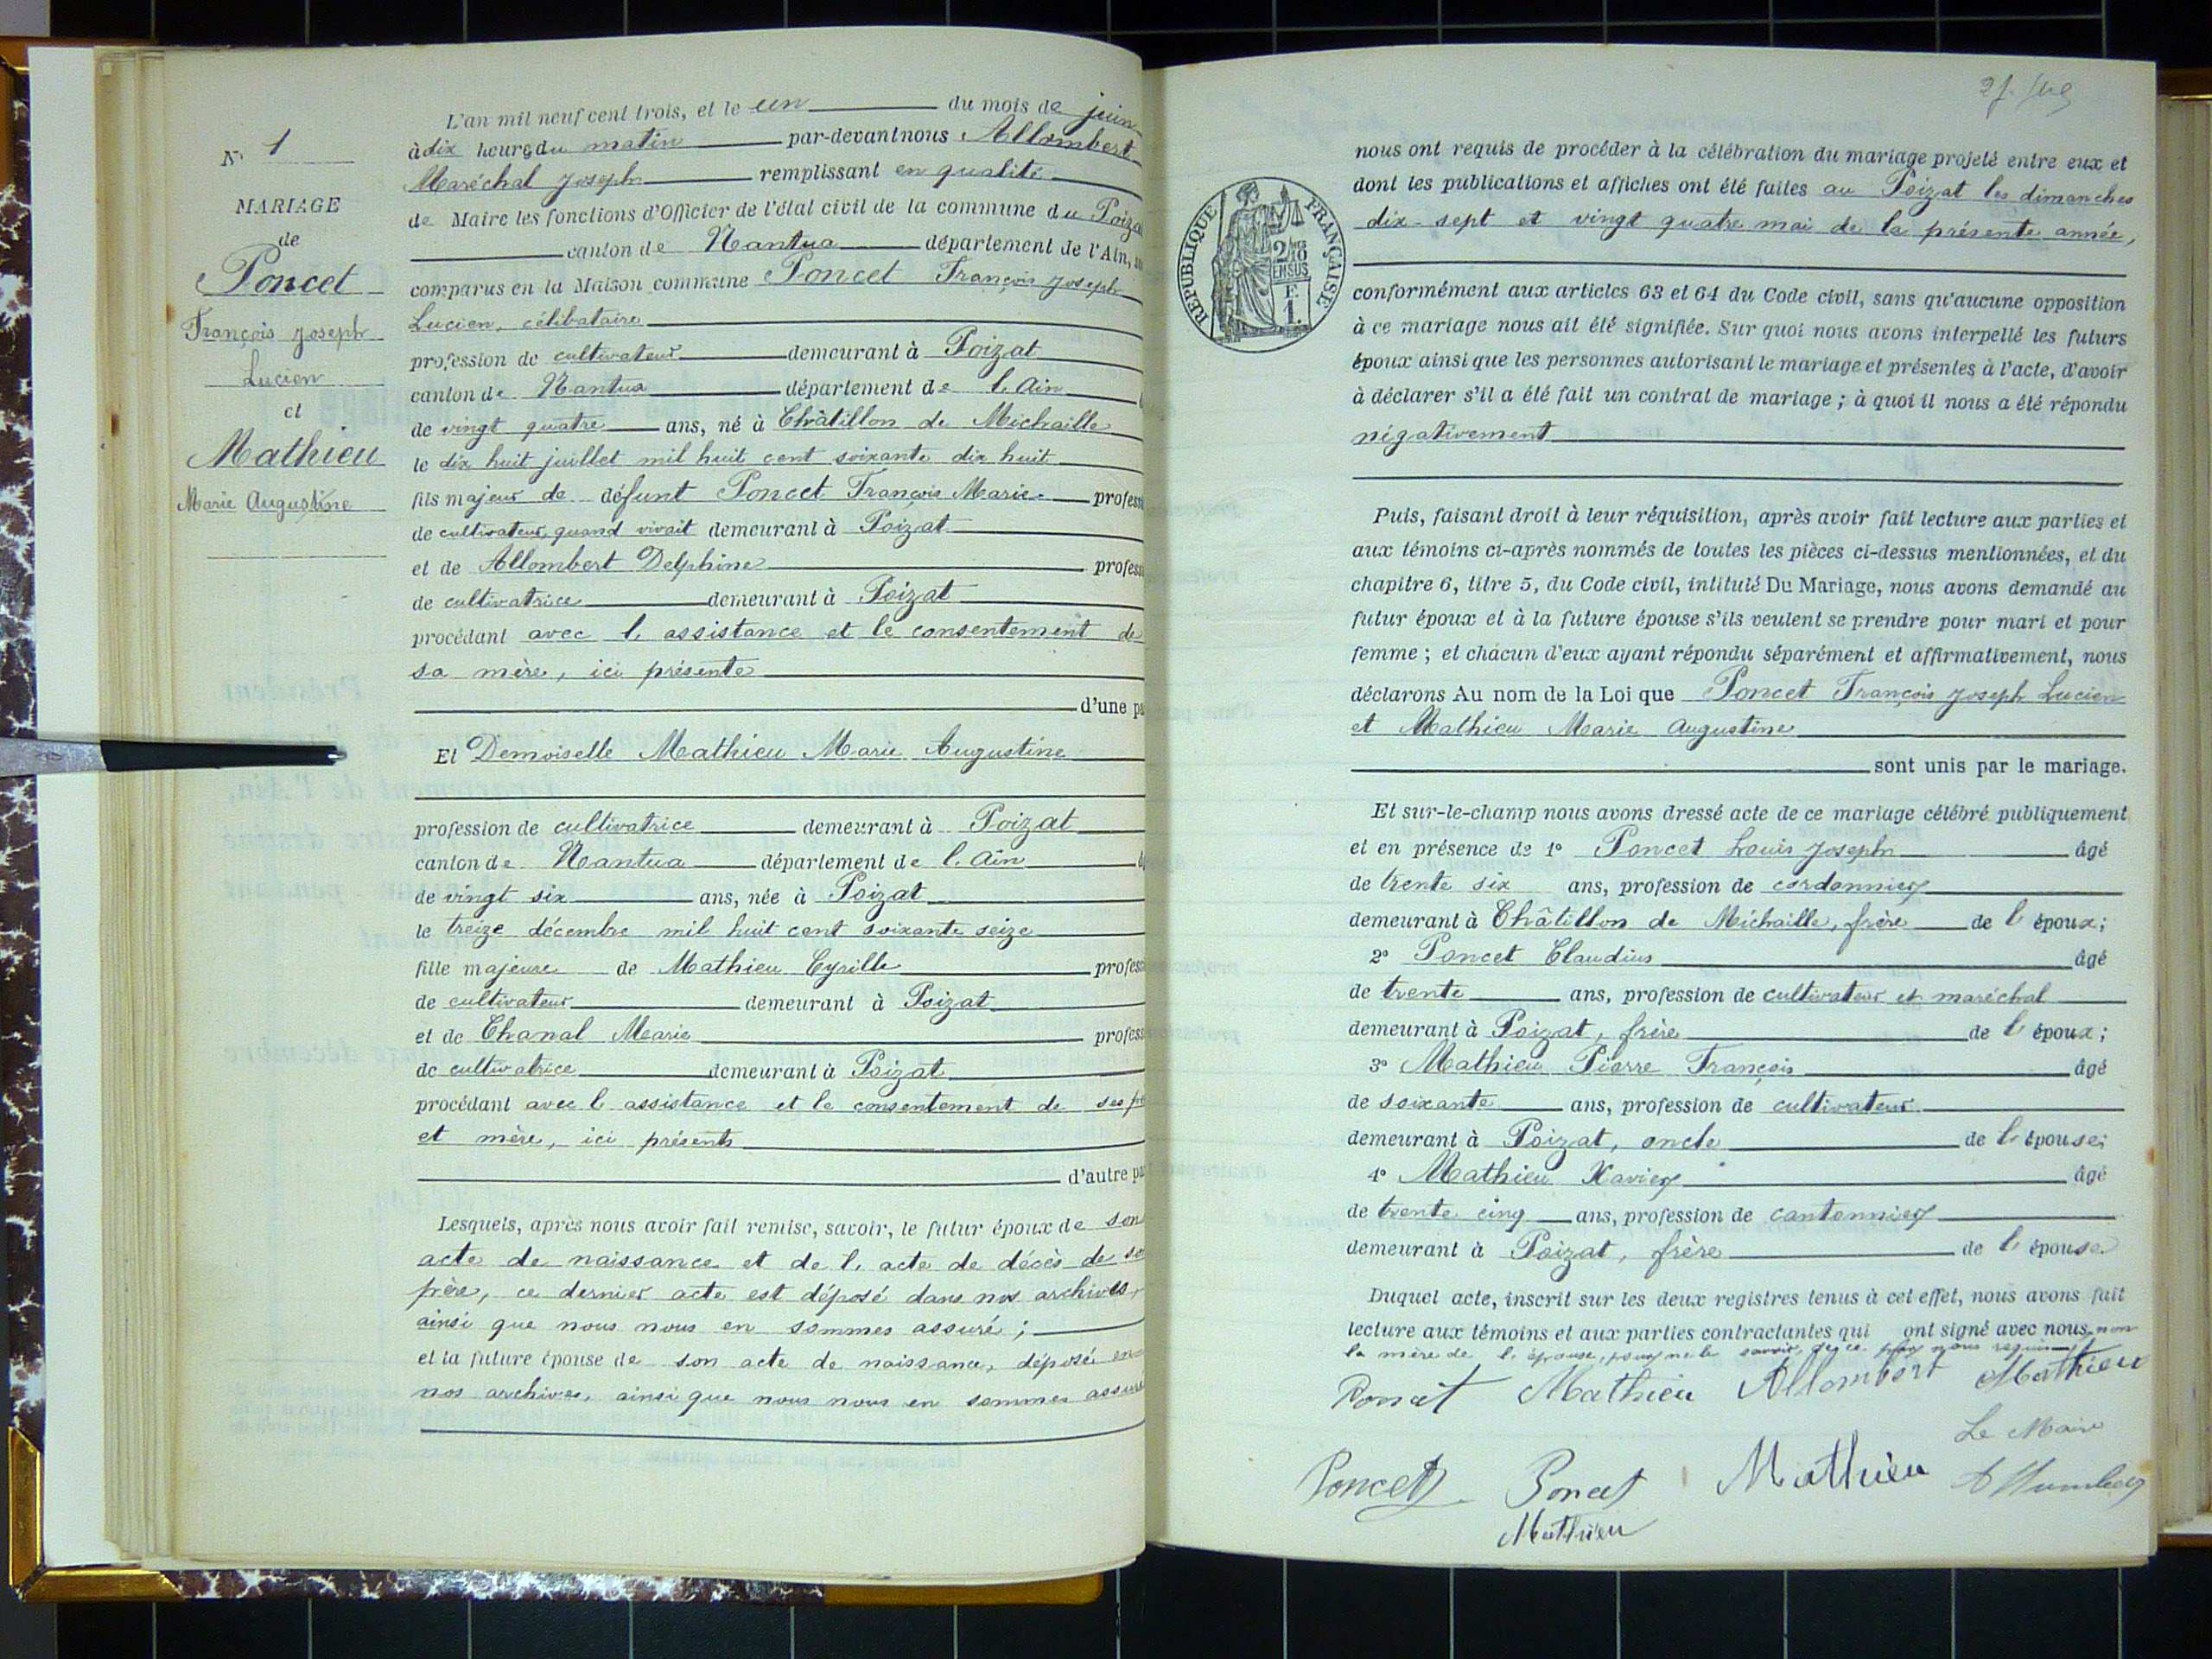 N° 1
MARIAGE
de
Poncet
François Joseph
Lucien
et
Mathieu
Marie Augustine
L'an mil neuf cent trois, et le un du mois de juin
à dix heures du matin par-devant nous Allombert
Maréchal Joseph remplissant en qualité
de Maire les fonctions d'Officier de l'état civil de la commune du Poiza
canton de Nantua département de l'Ain,
comparus en la Maison commune Poncet François Joseph
Lucien, célibataire
profession de cultivateur demeurant à Poizat
canton de Nantua département de l'Ain
de vingt quatre ans, né à Châtillon de Michaille
le dix huit juillet mil huit cent soixante dix huit
fils majeur de défunt Poncet François Marie professi
de cultivateur quand vivait demeurant à Poizat
et de Allombert Delphine professi
de cultivatrice demeurant à Poizat
procédant avec l'assistance et le consentement de
sa mère, ici présente
d'une pa
Et Demoiselle Mathieu Marie Augustine
profession de cultivatrice demeurant à Poizat
canton de Nantua département de l'Ain
de vingt six ans, née à Poizat
le treize décembre mil huit cent soixante seize
fille majeure de Mathieu Cyrille profess
de cultivateur demeurant à Poizat
et de Chanal Marie profess
de cultivatrice demeurant à Poizat
procédant avec l'assistance et le consentement de ses
et mère, ici présents
d'autre pa
Lesquels, après nous avoir fait remise, savoir, le futur époux de son
acte de naissance et de l'acte de décès de so
père, ce dernier acte est déposé dans nos archives,
ainsi que nous nous en sommes assuré ;
et la future épouse de son acte de naissance, déposé en
nos archives, ainsi que nous nous en sommes assuré
RÉPUBLIQUE FRANÇAISE
2/10
EN SUS
F.
1.
nous ont requis de procéder à la célébration du mariage projeté entre eux et
dont les publications et affiches ont été faites au Poizat les dimanches
dix-sept et vingt quatre mai de la présente année,
conformément aux articles 63 et 64 du Code civil, sans qu'aucune opposition
à ce mariage nous ait été signifiée. Sur quoi nous avons interpellé les futurs
époux ainsi que les personnes autorisant le mariage et présentes à l'acte, d'avoir
à déclarer s'il a été fait un contrat de mariage ; à quoi il nous a été répondu
négativement
Puis, faisant droit à leur réquisition, après avoir fait lecture aux parties et
aux témoins ci-après nommés de toutes les pièces ci-dessus mentionnées, et du
chapitre 6, titre 5, du Code civil, intitulé Du Mariage, nous avons demandé au
futur époux et à la future épouse s'ils veulent se prendre pour mari et pour
femme ; et chacun d'eux ayant répondu séparément et affirmativement, nous
déclarons Au nom de la Loi que Poncet François Joseph Lucien
et Mathieu Marie Augustine
sont unis par le mariage.
Et sur-le-champ nous avons dressé acte de ce mariage célébré publiquement
et en présence de 1° Poncet Louis Joseph âgé
de trente six ans, profession de cordonnier
demeurant à Châtillon de Michaille, frère de l'époux ;
2° Poncet Claudius âgé
de trente ans, profession de cultivateur et maréchal
demeurant à Poizat, frère de l'époux ;
3° Mathieu Pierre François âgé
de soixante ans, profession de cultivateur
demeurant à Poizat, oncle de l'épouse ;
4° Mathieu Xavier âgé
de trente cinq ans, profession de cantonnier
demeurant à Poizat, frère de l'épouse
Duquel acte, inscrit sur les deux registres tenus à cet effet, nous avons fait
lecture aux témoins et aux parties contractantes qui ont signé avec nous, non
la mère de l'épouse, pour ne le savoir, de ce par nous requise
Poncet Mathieu Allombert Mathieu
Le Maire
Poncet Poncet Mathieu Allombert
Mathieu